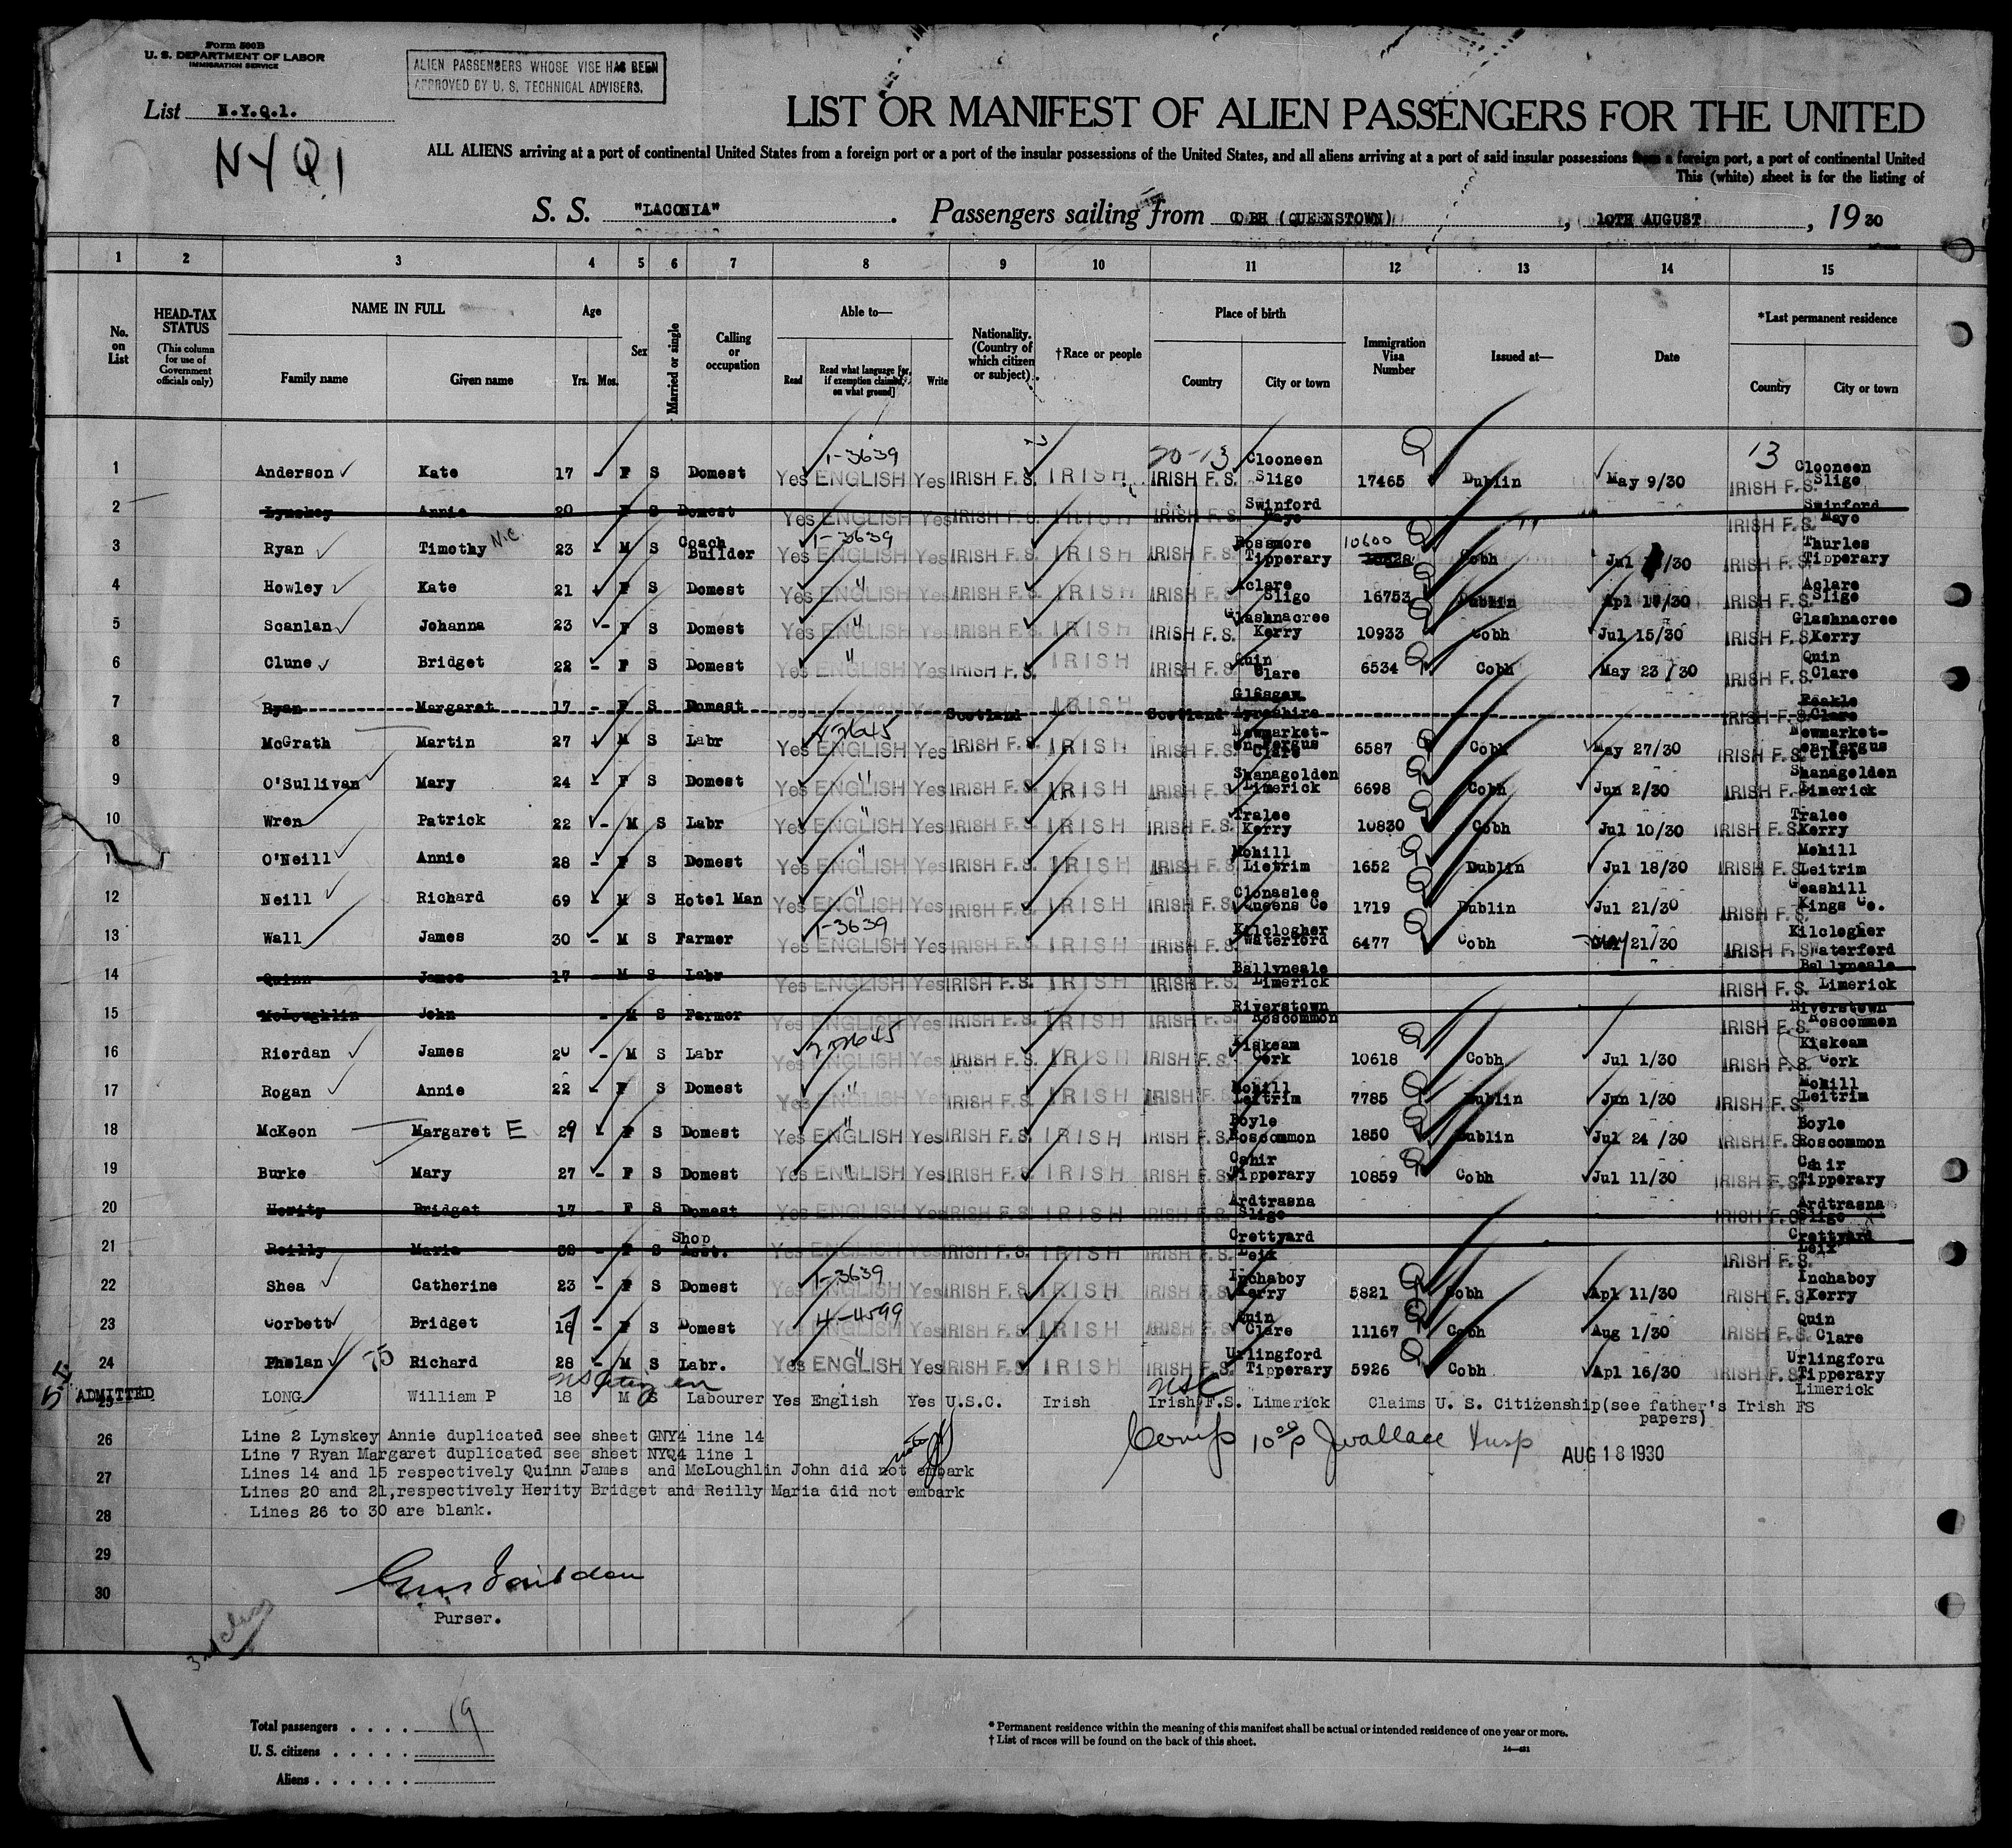 Form 500B
U. S. DEPARTMENT OF LABOR
IMMIGRATION SERVICE
ALIEN PASSENGERS WHOSE VISE HAS BEEN
APPROVED BY U. S. TECHNICAL ADVISERS.
List N.Y.Q.1.
NYQ1
LIST OR MANIFEST OF ALIEN PASSENGERS FOR THE UNITED
ALL ALIENS arriving at a port of continental United States from a foreign port or a port of the insular possessions of the United States, and all aliens arriving at a port of said insular possessions from a foreign port, a port of continental United
This (white) sheet is for the listing of
S. S. "LACONIA". Passengers sailing from COBH (QUEENSTOWN), 10TH AUGUST, 1930
1 2 3 4 5 6 7 8 9 10 11 12 13 14 15
No. on List
HEAD-TAX STATUS
(This column for use of Government officials only)
NAME IN FULL
Family name Given name
Age
Yrs. Mos.
Sex
Married or single
Calling or occupation
Able to—
Read Read what language [or, if exemption claimed, on what ground] Write
Nationality. (Country of which citizen or subject).
†Race or people
Place of birth
Country City or town
Immigration Visa Number
Issued at—
Date
*Last permanent residence
Country City or town
1 Anderson Kate 17 - F S Domest Yes ENGLISH 1-3639 Yes IRISH F.S. IRISH 20-13 IRISH F.S. Clooneen Sligo 17465 Dublin May 9/30 13 IRISH F.S. Clooneen Sligo
2 Lynskey Annie 20 F S Domest Yes ENGLISH Yes IRISH F.S. IRISH IRISH F.S. Swinford Mayo IRISH F.S. Swinford Mayo
3 Ryan Timothy N.C. 23 - M S Coach Builder Yes ENGLISH 1-3639 Yes IRISH F.S. IRISH IRISH F.S. Rossmore Tipperary 10600 Cobh Jul /30 IRISH F.S. Thurles Tipperary
4 Howley Kate 21 - F S Domest Yes ENGLISH " Yes IRISH F.S. IRISH IRISH F.S. Aclare Sligo 16753 Dublin Apl /30 IRISH F.S. Aclare Sligo
5 Scanlan Johanna 23 - F S Domest Yes ENGLISH " Yes IRISH F.S. IRISH IRISH F.S. Glashnacree Kerry 10933 Cobh Jul 15/30 IRISH F.S. Glashnacree Kerry
6 Clune Bridget 22 - F S Domest Yes ENGLISH " Yes IRISH F.S. IRISH IRISH F.S. Quin Clare 6534 Cobh May 23/30 IRISH F.S. Quin Clare
7 Ryan Margaret 17 - F S Domest Scotland IRISH Scotland Glasgow Ayrshire IRISH F.S. Feakle Clare
8 McGrath Martin 27 - M S Labr Yes ENGLISH Yes IRISH F.S. IRISH IRISH F.S. Newmarket-on Fergus Clare 6587 Cobh May 27/30 IRISH F.S. Newmarket-on Fergus Clare
9 O'Sullivan Mary 24 - F S Domest Yes ENGLISH " Yes IRISH F.S. IRISH IRISH F.S. Shanagolden Limerick 6698 Cobh Jun 2/30 IRISH F.S. Shanagolden Limerick
10 Wren Patrick 22 - M S Labr Yes ENGLISH " Yes IRISH F.S. IRISH IRISH F.S. Tralee Kerry 10830 Cobh Jul 10/30 IRISH F.S. Tralee Kerry
11 O'Neill Annie 28 - F S Domest Yes ENGLISH " Yes IRISH F.S. IRISH IRISH F.S. Mohill Lietrim 1652 Dublin Jul 18/30 IRISH F.S. Mohill Leitrim
12 Neill Richard 69 - M S Hotel Man Yes ENGLISH " Yes IRISH F.S. IRISH IRISH F.S. Clonaslee Queens Co 1719 Dublin Jul 21/30 IRISH F.S. Geashill Kings Co.
13 Wall James 30 - M S Farmer Yes ENGLISH 1-3639 Yes IRISH F.S. IRISH IRISH F.S. Kilclogher Waterford 6477 Cobh May 21/30 IRISH F.S. Kilclogher Waterford
14 Quinn James 17 - M S Labr Yes ENGLISH Yes IRISH F.S. IRISH IRISH F.S. Ballyneale Limerick IRISH F.S. Ballyneale Limerick
15 McLoughlin John - M S Farmer Yes ENGLISH Yes IRISH F.S. IRISH IRISH F.S. Riverstown Roscommon IRISH F.S. Riverstown Roscommon
16 Riordan James 20 - M S Labr Yes ENGLISH Yes IRISH F.S. IRISH IRISH F.S. Kiskeam Cork 10618 Cobh Jul 1/30 IRISH F.S. Kiskeam Cork
17 Rogan Annie 22 - F S Domest Yes ENGLISH " Yes IRISH F.S. IRISH IRISH F.S. Mohill Leitrim 7785 Dublin Jun 1/30 IRISH F.S. Mohill Leitrim
18 McKeon Margaret E 29 - F S Domest Yes ENGLISH " Yes IRISH F.S. IRISH IRISH F.S. Boyle Roscommon 1850 Dublin Jul 24/30 IRISH F.S. Boyle Roscommon
19 Burke Mary 27 - F S Domest Yes ENGLISH " Yes IRISH F.S. IRISH IRISH F.S. Cahir Tipperary 10859 Cobh Jul 11/30 IRISH F.S. Cahir Tipperary
20 Herity Bridget 17 - F S Domest Yes ENGLISH Yes IRISH F.S. IRISH IRISH F.S. Ardtrasna Sligo IRISH F.S. Ardtrasna Sligo
21 Reilly Maria - F S Shop Asst. Yes ENGLISH Yes IRISH F.S. IRISH IRISH F.S. Crettyard Leix IRISH F.S. Crettyard Leix
22 Shea Catherine 23 - F S Domest Yes ENGLISH 1-3639 Yes IRISH F.S. IRISH IRISH F.S. Inchaboy Kerry 5821 Cobh Apl 11/30 IRISH F.S. Inchaboy Kerry
23 Corbett Bridget 17 - F S Domest Yes ENGLISH 4-4599 Yes IRISH F.S. IRISH IRISH F.S. Quin Clare 11167 Cobh Aug 1/30 IRISH F.S. Quin Clare
24 Phelan Richard 28 - M S Labr. Yes ENGLISH " Yes IRISH F.S. IRISH IRISH F.S. Urlingford Tipperary 5926 Cobh Apl 16/30 IRISH F.S. Urlingford Tipperary
ADMITTED 25 LONG William P 18 US Citizen M S Labourer Yes English Yes U.S.C. Irish USC Irish F.S. Limerick Claims U. S. Citizenship(see father's papers) Irish FS Limerick
26 Line 2 Lynskey Annie duplicated see sheet GNY4 line 14
Line 7 Ryan Margaret duplicated see sheet NYQ4 line 1
27 Lines 14 and 15 respectively Quinn James and McLoughlin John did not embark
Lines 20 and 21,respectively Herity Bridget and Reilly Maria did not embark
28 Lines 26 to 30 are blank.
Comp 10 P Jwallace Insp AUG 18 1930
29
30
Purser.
3rd class
Total passengers . . . . 19
U. S. citizens . . . . .
Aliens . . . . . .
* Permanent residence within the meaning of this manifest shall be actual or intended residence of one year or more.
† List of races will be found on the back of this sheet.